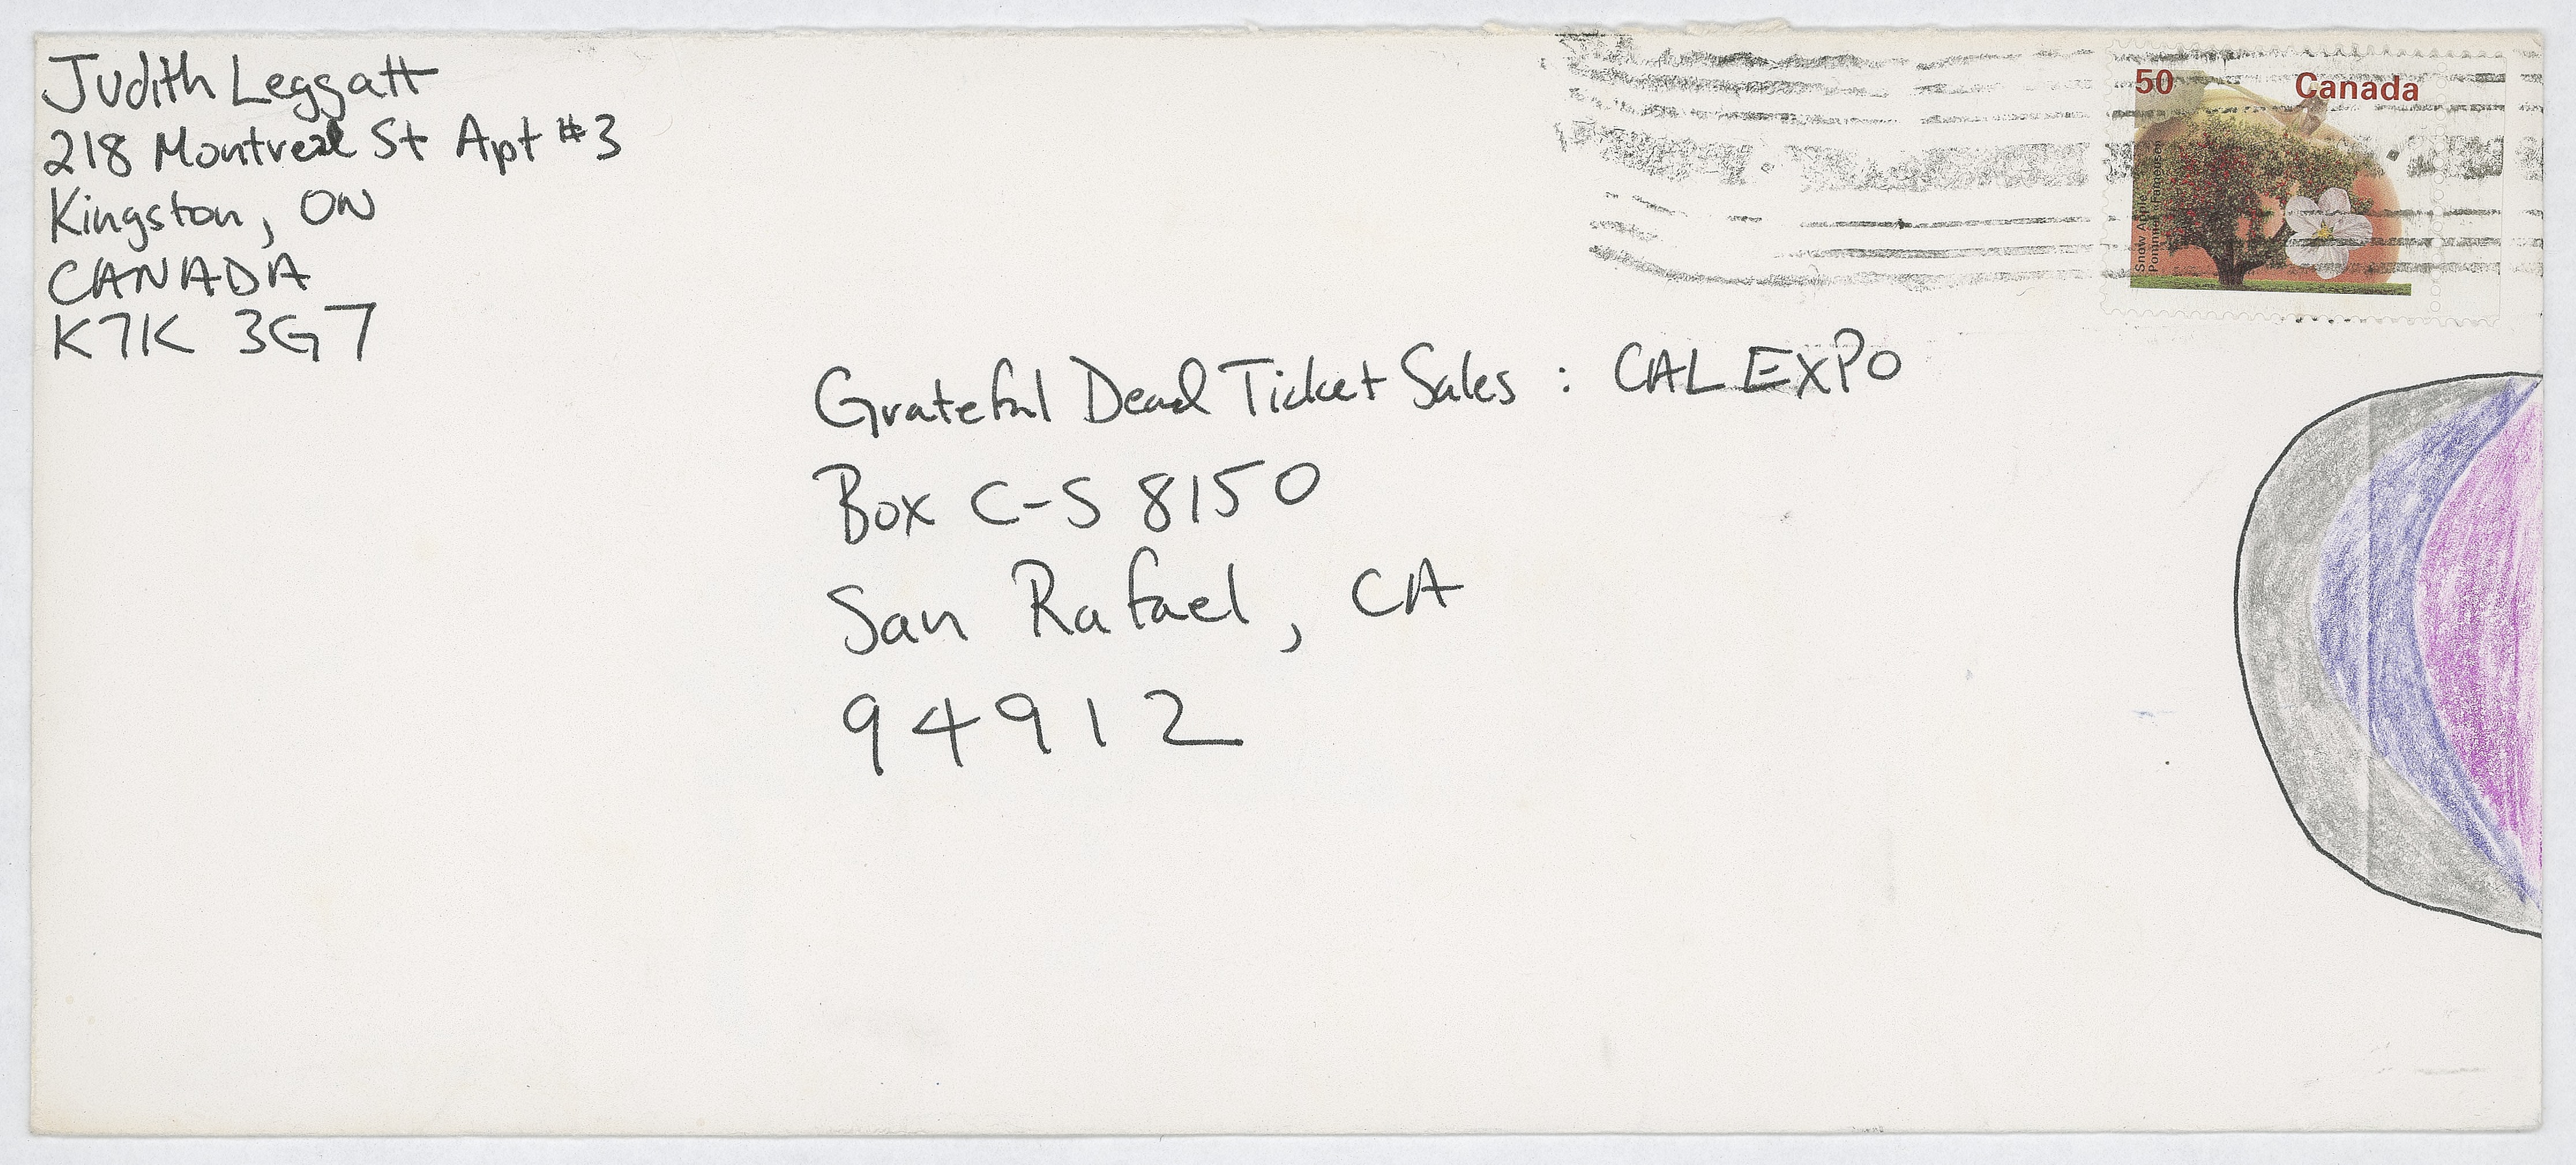 Judith Leggatt
218 Montreal St Apt #3
Kingston, ON
CANADA
K7K 3G7
50 Canada
Snow Apple
Pommier Fameuse
Grateful Dead Ticket Sales : CAL EXPO
Box C-S 8150
San Rafael, CA
94912